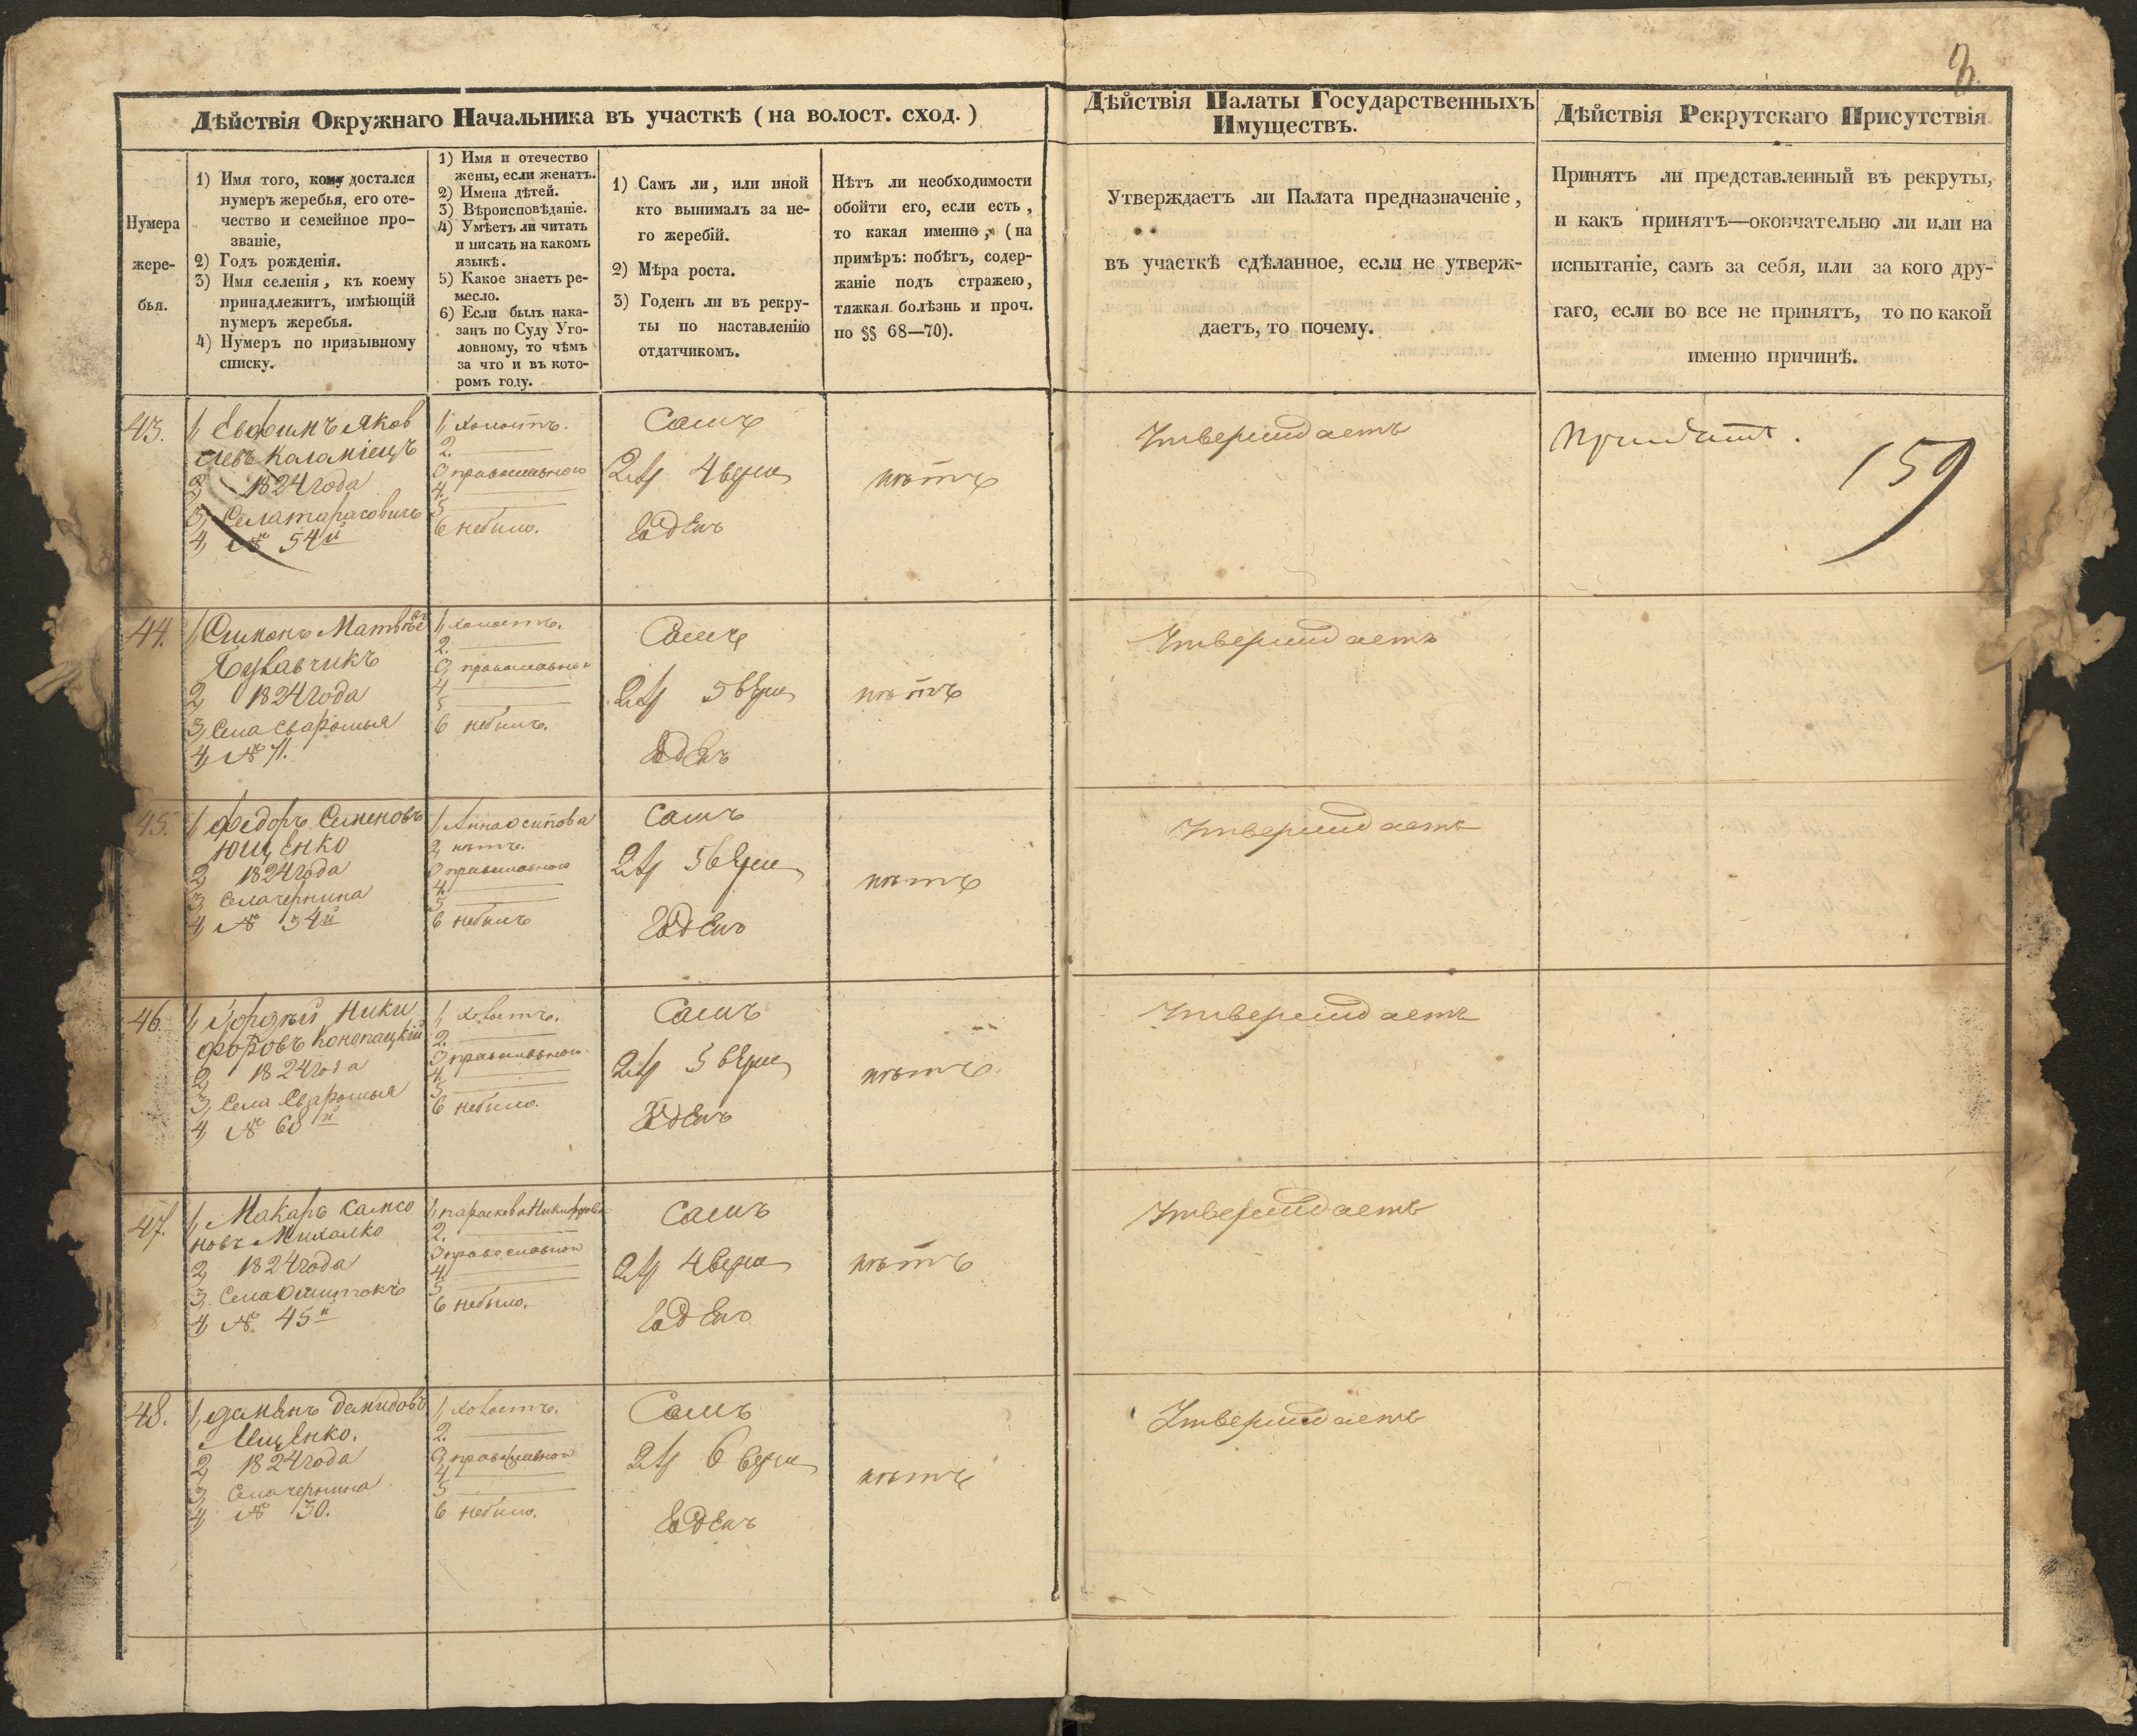 Дѣйствія Окружнаго Начальника въ участкѣ (на волост. сход.)
Нумера
жере-
бья.
1) Имя того, кому достался
нумеръ жеребья, его оте-
чество и семейное про-
званіе,
2) Годъ рожденія.
3) Имя селенія, къ коему
принадлежитъ, имѣющій
нумеръ жеребья.
4) Нумеръ по призывному
списку.
1) Имя и отечество
жены, если женатъ.
2) Имена дѣтей.
3) Вѣроисповѣданіе.
4) Умѣетъ ли читать
и писать на какомъ
языкѣ.
5) Какое знаетъ ре-
месло.
6) Если былъ нака-
занъ по Суду Уго-
ловному, то чѣмъ
за что и въ кото-
ромъ году.
1) Самъ ли, или иной
кто вынималъ за не-
го жеребій.
2) Мѣра роста.
3) Годенъ ли въ рекру-
ты по наставленію
отдатчикомъ.
Нѣтъ ли необходимости
обойти его, если есть,
то какая именно, (на
примѣръ: побѣгъ, содер-
жаніе подъ стражею,
тяжкая болѣзнь и проч.
по §§ 68—70).
Дѣйствія Палаты Государственныхъ
Имуществъ.
Утверждаетъ ли Палата предназначеніе,
въ участкѣ сдѣланное, если не утверж-
даетъ, то почему.
Дѣйствія Рекрутскаго Присутствія
Принятъ ли представленный въ рекруты,
и какъ принятъ—окончательно ли или на
испытаніе, самъ за себя, или за кого дру-
гаго, если во все не принятъ, то по какой
именно причинѣ.
43.
1, Евфимъ Яков
левъ Коломіецъ
2, 1824 года
3, Села тарасовичъ
4, № 54й
1, холостъ.
2.
3 православного
4.
5
6 небыло.
Самъ
2 ар 4 вер
Годенъ
нѣтъ
Утверждаетъ
159
44.
1, Симонъ Матвѣевъ
2, 1824 года
3, Села Сваромья
4, № 71.
1, холостъ.
2.
3, православно
4
5
6 небылъ.
Самъ
2 ар 5 вер
Годенъ
нѣтъ
Утверждаетъ
45.
1, федоръ Семеновъ
Ющенко
2, 1824 года
3, Села чернина
4, № 34й
1, Анна осипова
2, нѣтъ.
3 православного
4.
5
6 небылъ
Самъ
2 ар 5 вер
Годенъ
нѣтъ
Утверждаетъ
46.
1, Гордѣй Ники
форовъ Конопацкій
2, 1824 года
3, Села Сваромья
4, № 68й
1, холостъ.
2.
3 православного
4.
5
6 небыло.
Самъ
2 ар 5 вер
Годенъ
нѣтъ.
Утверждаетъ
47.
1, Макаръ Самсо
новъ Михалко
2, 1824 года
3, Села Ошитокъ
4, № 45й
1, параскева Никифорова
2.
3 православной
4.
5
6 небыло.
Самъ
2 ар 4 вер
Годенъ
нѣтъ
Утверждаетъ
48.
1, Демянъ Демидовъ
2, 1824 года
3, Села чернина
4, № 30.
1, холостъ.
2.
3 православной
4
5
6 небыло.
Самъ
2 ар 6 вер
Годенъ
нѣтъ
Утверждаетъ